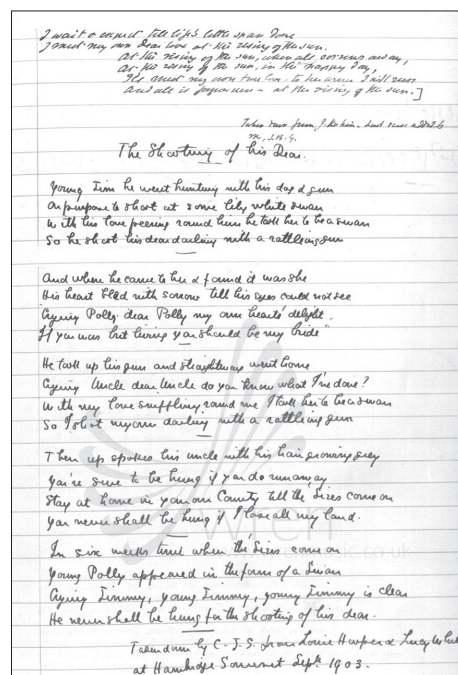 I wait & expect till life's little span done
I meet my own Dear love at the rising of the sun.
At the rising of the sun, when all sorrows away,
At the rising of the sun, in this happy day,
I'll meet my own true love to her arms I will run
And all is forgiven - at the rising of the sun.]
Taken down from J. - last verse added by
The Shooting of his Dear.
Young Jim he went hunting with his dog & gun
On purpose to shoot at some lily white swan
With his love peering round him he took her to be a swan
So he shot his dear darling with a rattling gun
And when he came to her & found it was she
His heart bled with sorrow till his eyes could not see
Crying Polly dear Polly my own hearts' delight
If you was but living you should be my bride"
He took up his gun and straightway went home
Crying Uncle dear Uncle do you know what I've done?
With my love snuffling round me I took her to be a swan
So I shot my own darling with a rattling gun
Then up spokes his uncle with his hair growing grey
You're sure to be hung if you do run away
Stay at home in your own County till the Sizes come on
You never shall be hung if I lose all my land.
In six weeks time when the Sizes come on
Young Polly appeared in the form of a Swan
Crying Jimmy, young Jimmy, young Jimmy is clear
He never shall be hung for the shooting of his dear.
Taken down by C. J. S. from Louie Hooper & Lucy White
at Hambridge Somerset Sept. 1903.